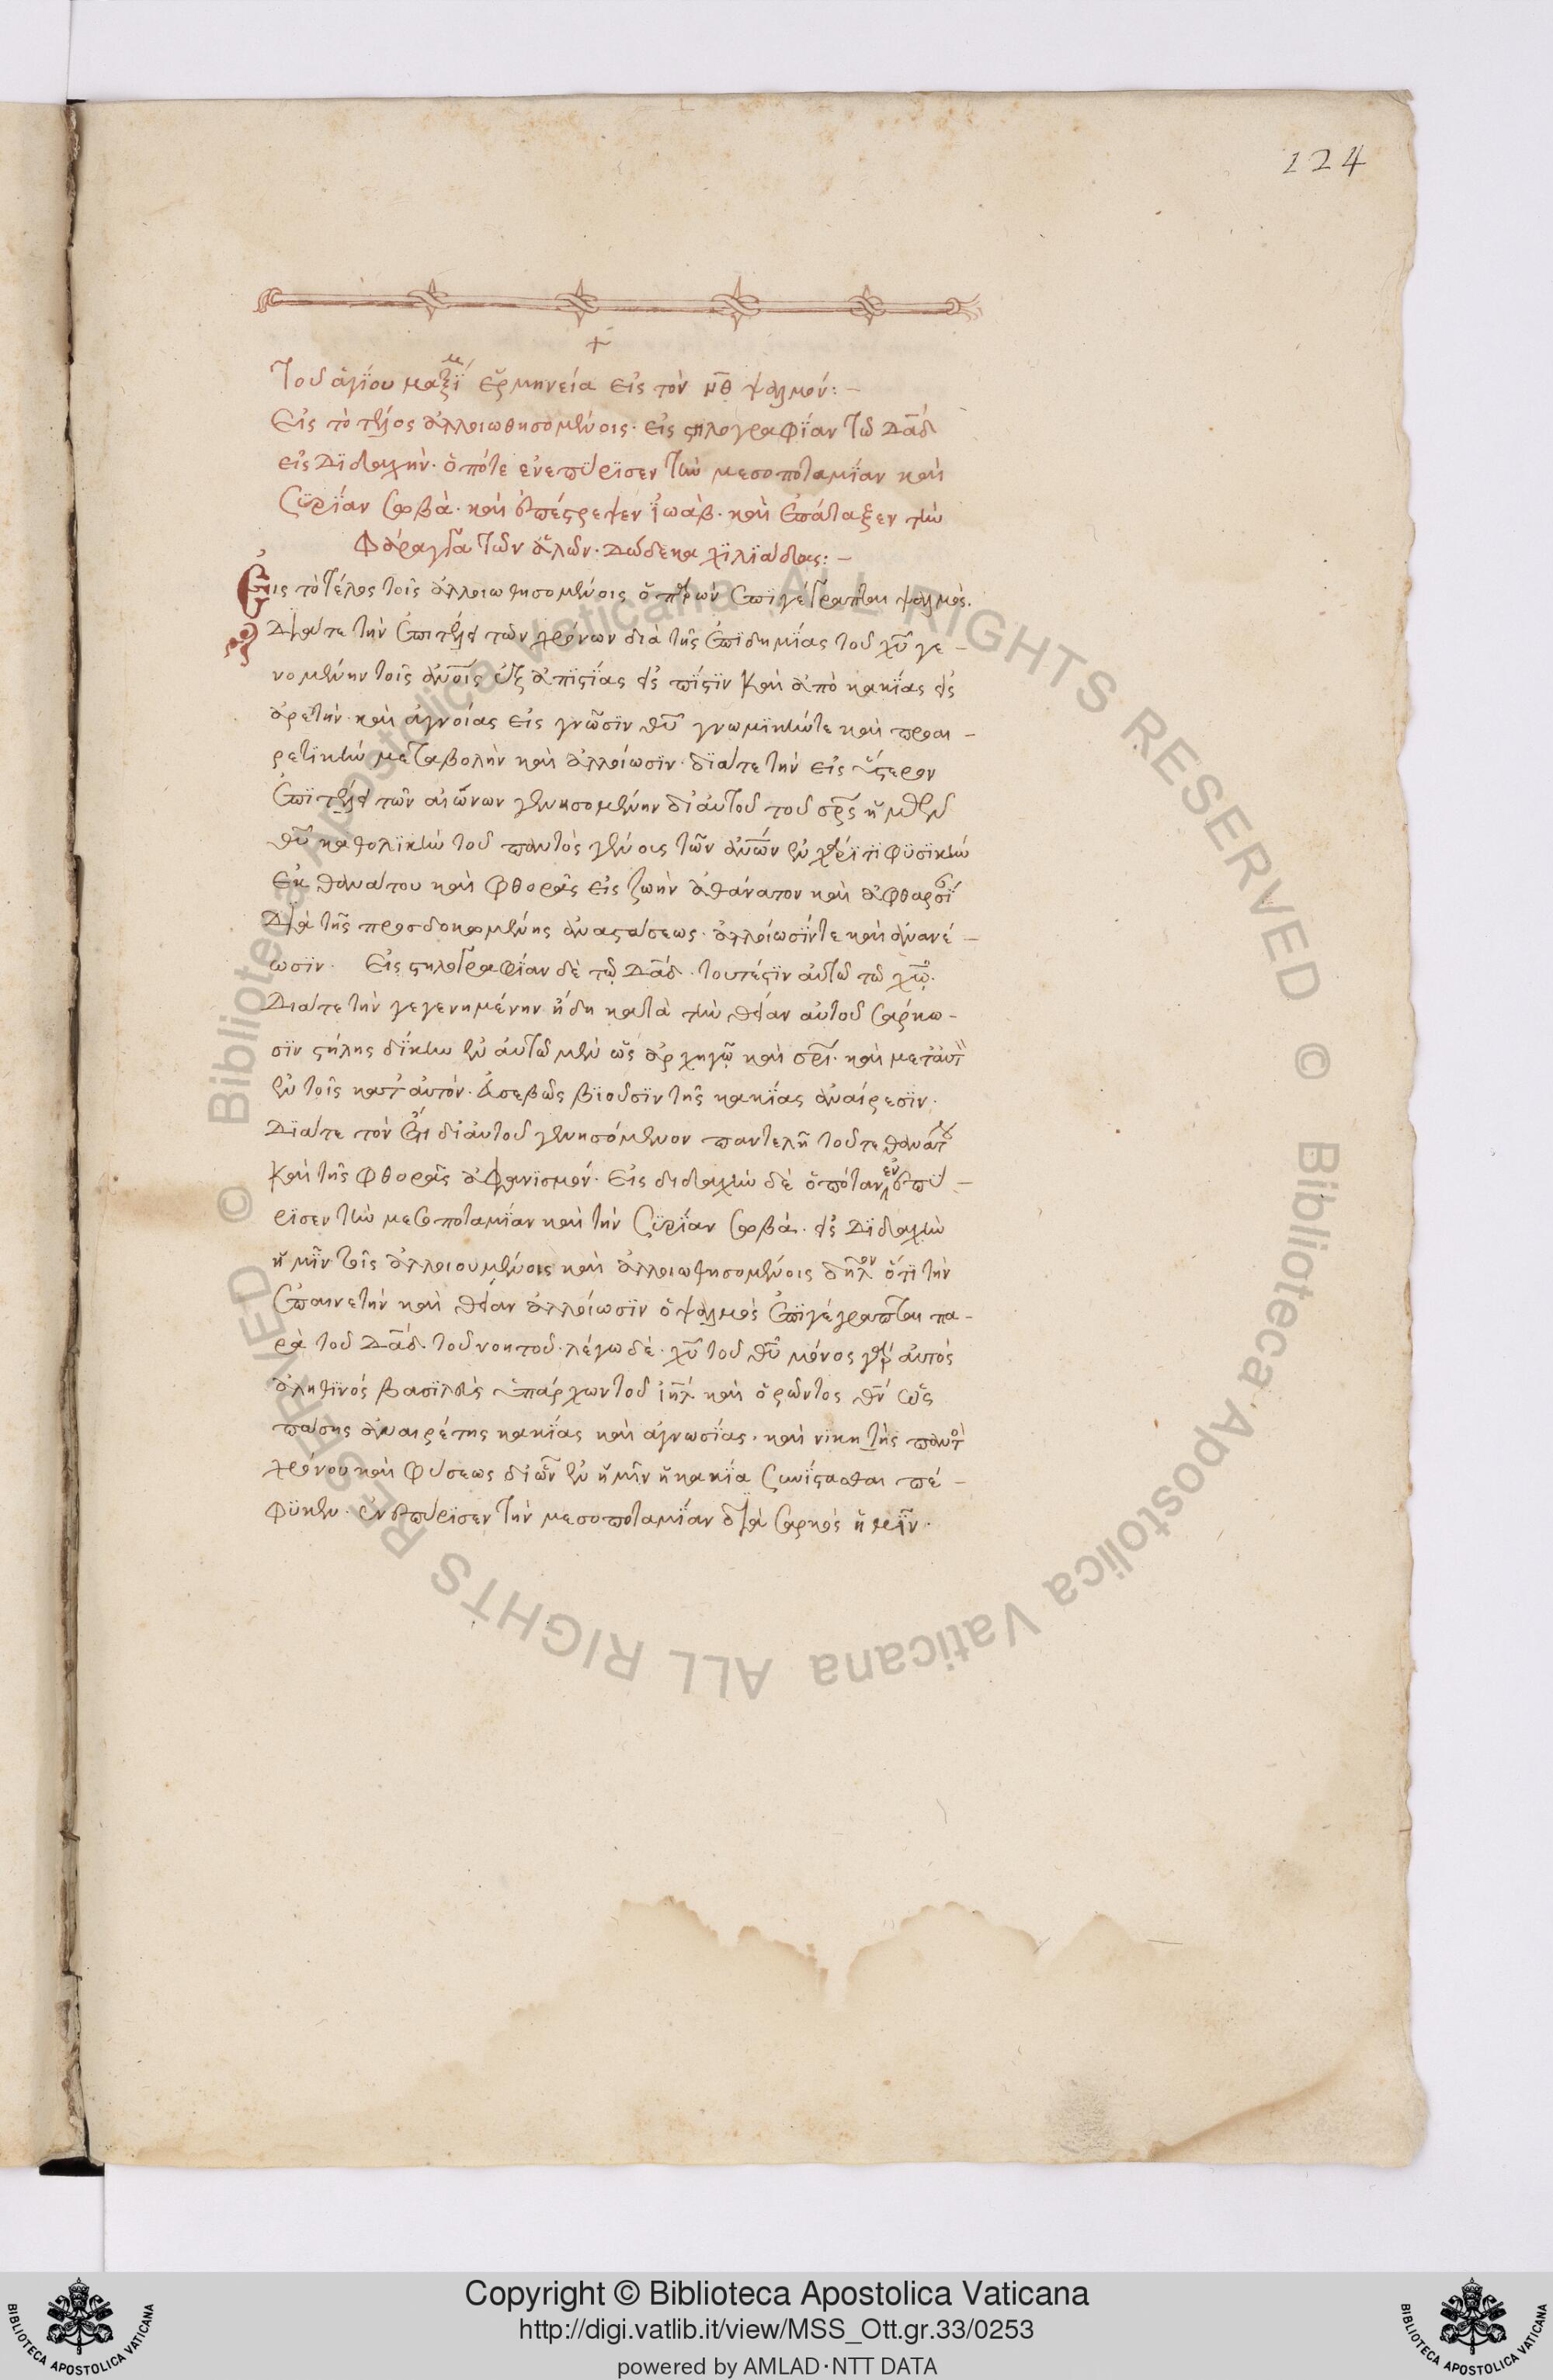 124
+
Τοῦ ἁγίου μαξΐμ ἑρμηνεία εἰς τὸν ν̅θ̅ ψαλμόν:–
Εἰς τὸ τέλος ἀλλοιωθησομένοις· εἰς στηλογραφΐαν τῶ δα̅δ
εἰς διδαχὴν· ὁπότε ἐνεπύρϊσεν τὴν μεσοποταμΐαν καὶ
Συρΐαν σοβὰ· καὶ ἐπέστρεψεν ϊωὰβ· καὶ ἐπάταξεν τὴν
φάραγγα τῶν ἁλῶν· δώδεκα χϊλϊάδας:–
Εἰς τὸ τέλος τοῖς ἀλλοιωθησομένοις ὁ παρὼν ἐπϊγέγραπται ψαλμὸς.
Διά τε τὴν ἐπὶ τέλει τῶν χρόνων διὰ τῆς ἐπϊδημΐας τοῦ χ̅υ γε–
νομένην τοῖς ἀν̅οις ἐξ ἀπϊστΐας εἰς πίστϊν καὶ ἀπὸ κακΐας εἰς
ἀρετὴν· καὶ ἀγνοίας εἰς γνῶσϊν θ̅υ γνωμϊκήν τε καὶ προαι–
ρετϊκὴν μεταβολὴν καὶ ἀλλοίωσϊν· διά τε τὴν εἰς ὕστερον
ἐπϊ τέλει τῶν αἰώνων γενησομένην δι' αὐτοῦ τοῦ σ̅ρ̅ς ἡμῶν
θ̅υ καθολϊκὴν τοῦ παντὸς γένους τῶν ἀν̅ων ἐν χάριτϊ φϋσϊκὴν
ἐκ θανάτου καὶ φθορᾶς εἰς ζωὴν ἀθάνατον καὶ ἀφθαρσΐ
διὰ τῆς προσδοκομένης ἀναστάσεως· ἀλλοίωσΐν τε καὶ ἀνανέ–
ωσϊν· Εἰς στηλογραφίαν δὲ τῷ δα̅δ· τουτέστϊν αὐτῶ τῶ χ̅ῷ·
Διά τε τὴν γεγενημένην ἤδη κατὰ τὴν θείαν αὐτοῦ σάρκω–
σϊν στήλης δίκην ἐν αὐτῶ μὲν ὡς ἀρχηγῷ καὶ σ̅ρ̅ι· καὶ μετ' αὐτ
ἐν τοῖς κατ' αὐτὸν· ἀσεβῶς βϊοῦσϊν τῆς κακΐας ἀναίρεσϊν·
Διά τε τὸν ἔτι δι' αὐτοῦ γενησόμενον παντελῆ τοῦ τε θανάτου
καὶ τῆς φθορᾶς ἀφανισμόν· Εἰς διδαχὴν δὲ ὁπόταν ἐνεπύ–
ρϊσεν τὴν μεσοποταμΐαν καὶ τὴν Συρΐαν σοβὰ· εἰς διδαχὴν
ἡμῖν τοῖς ἀλλοιουμένοις καὶ ἀλλοιωθησομένοις δηλον ὅτϊ τὴν
ἐπαινετὴν καὶ θείαν ἀλλοίωσϊν ὁ ψαλμὸς ἐπϊγέγραπται πα–
ρὰ τοῦ δα̅δ· τοῦ νοητοῦ· λέγω δὲ· χ̅υ τοῦ θ̅υ μόνος γὰρ αὐτὸς
ἀληθϊνὸς βασϊλεὺς ὑπάρχων τοῦ ἰ̅η̅λ καὶ ὁρῶντος θ̅ν ὡς
πάσης ἀναιρέτης κακΐας καὶ ἀγνωσΐας· καὶ νϊκητὴς παντὸ
χρόνου καὶ φύσεως δι' ὧν ἐν ἡμῖν ἡ κακΐα συνΐστασθαι πέ–
φϋκεν· ἐνεπύρϊσεν τὴν μεσοποταμΐαν διὰ σαρκὸς ἡμῖν·
© Biblioteca Apostolica Vaticana ALL RIGHTS RESERVED © Biblioteca Apostolica Vaticana ALL RIGHTS RESERVED
Copyright © Biblioteca Apostolica Vaticana
http://digi.vatlib.it/view/MSS_Ott.gr.33/0253
powered by AMLAD·NTT DATA
BIBLIOTECA APOSTOLICA VATICANA
BIBLIOTECA APOSTOLICA VATICANA